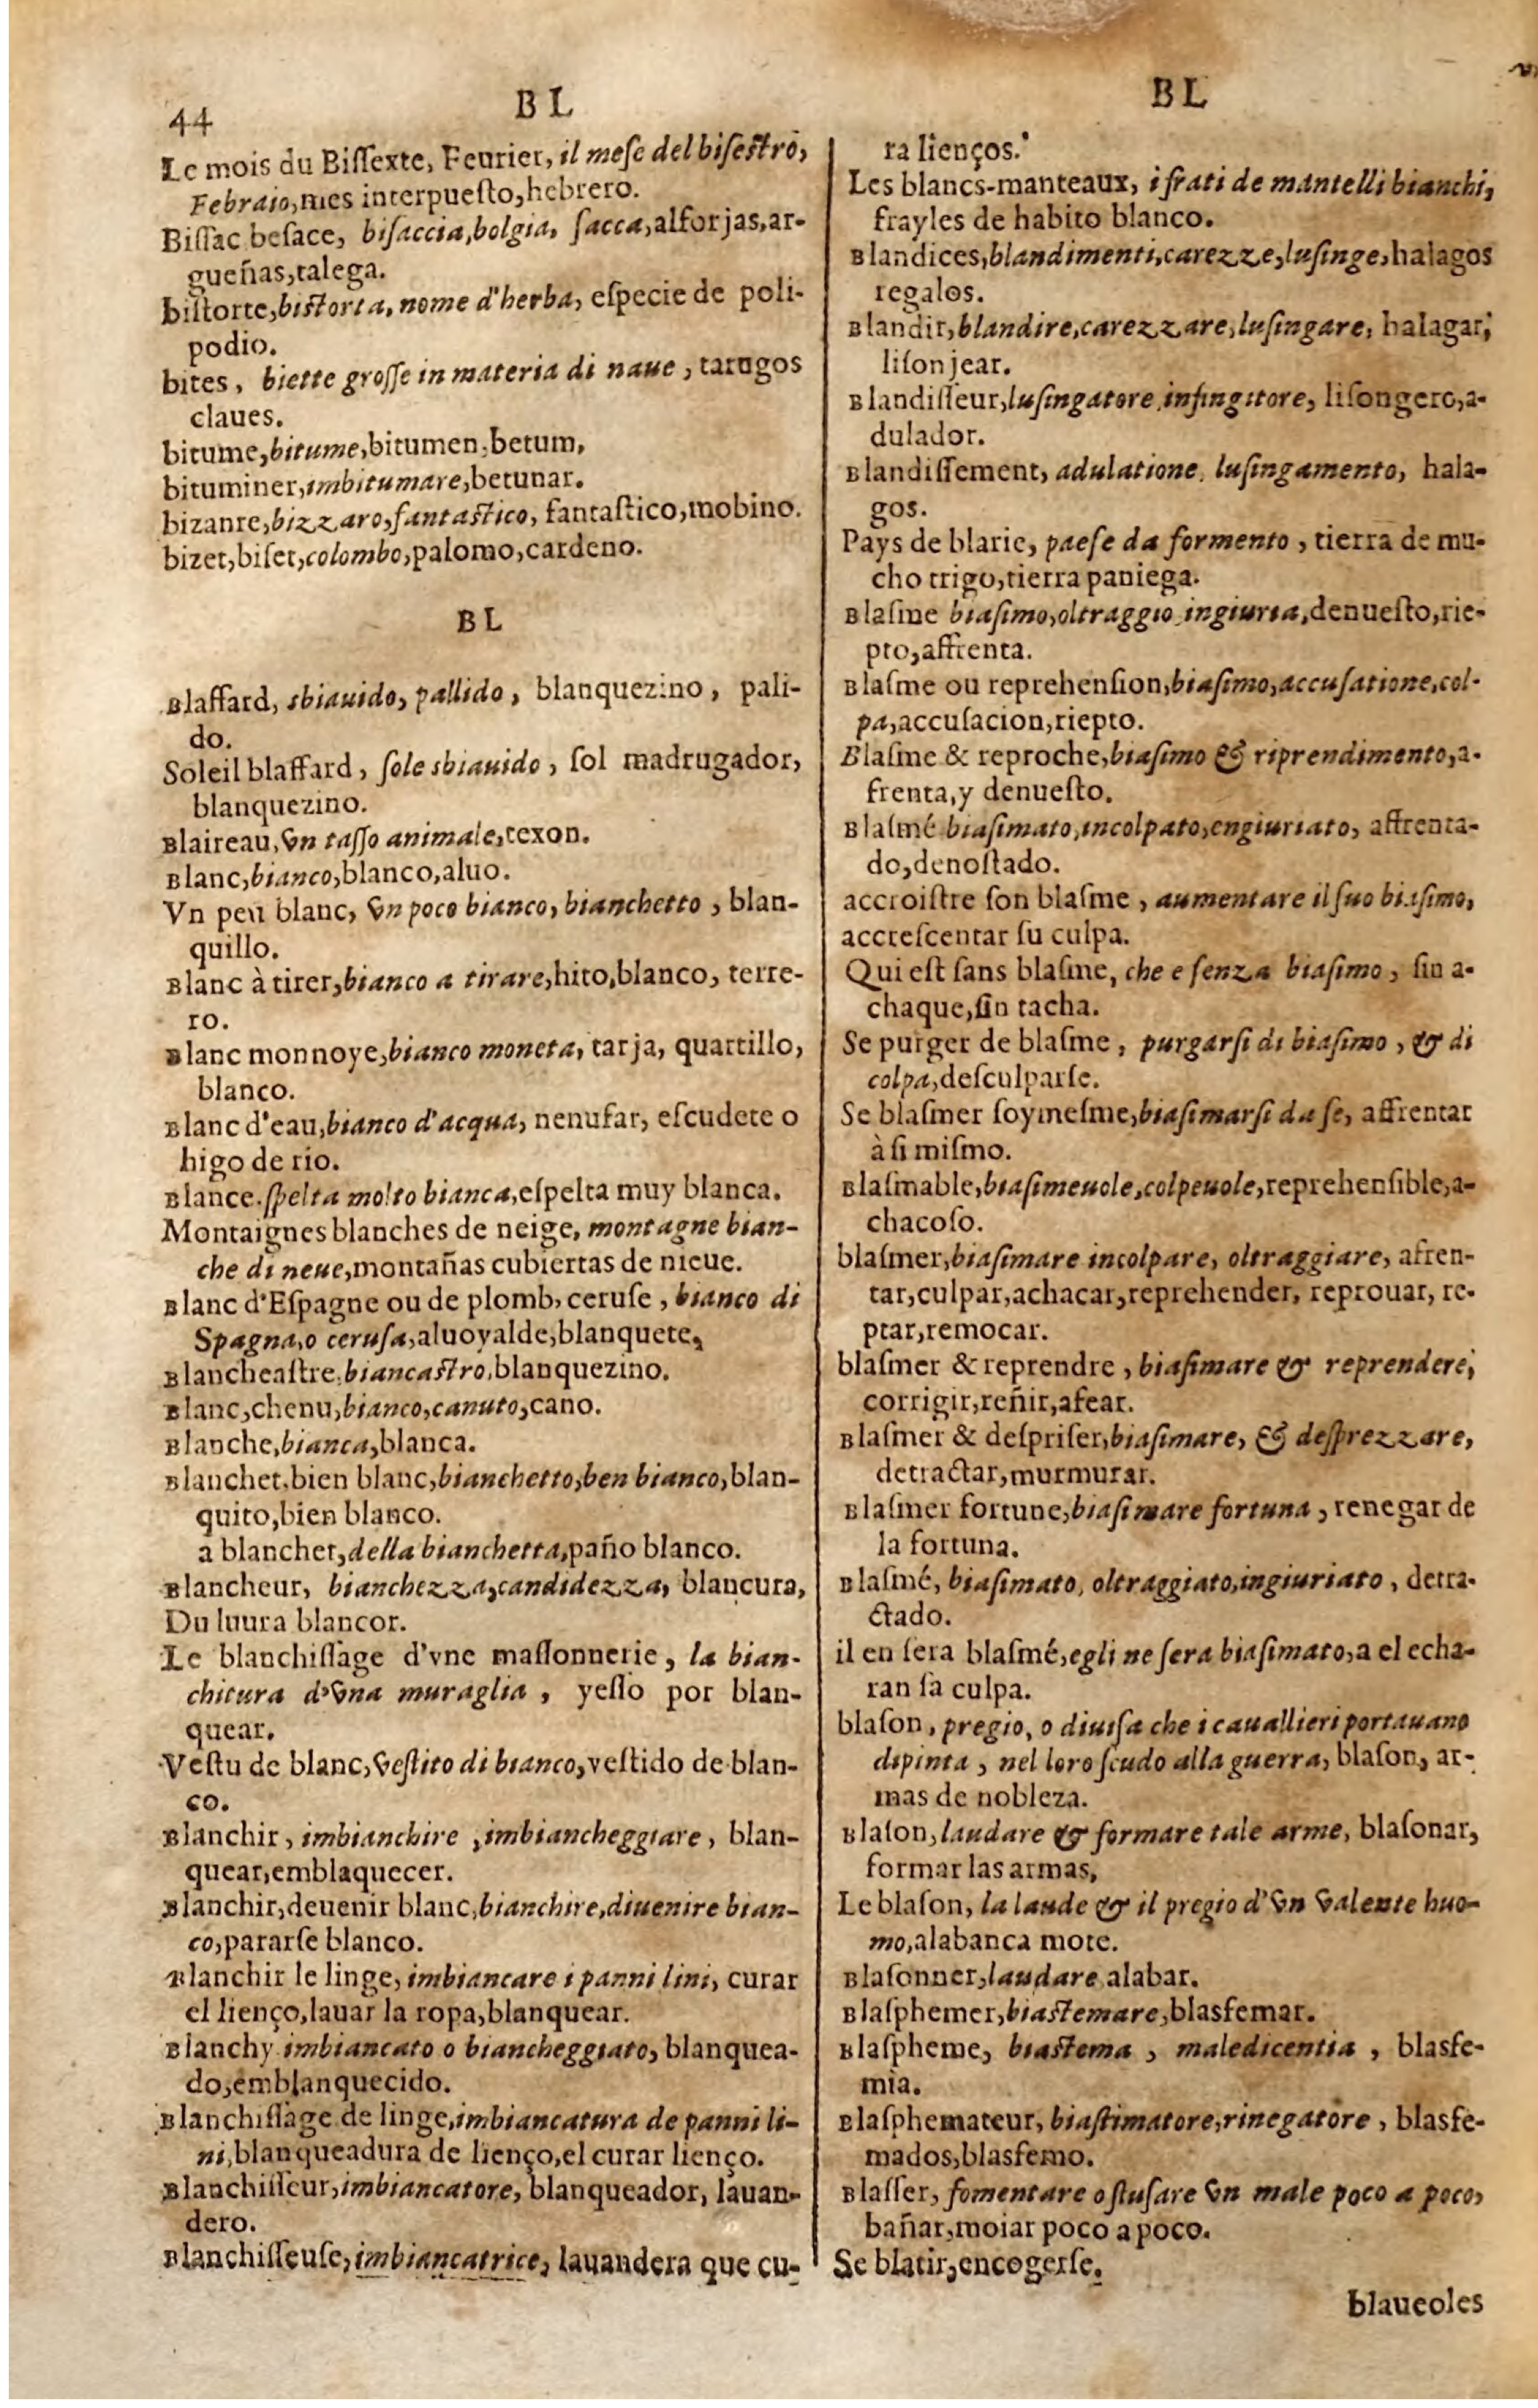 44
BL
BL
Le mois du Biſſexte, Feurier, il meſe del biſeſtro,
Febraio, mes interpueſto, hebrero.
Biſſac beſace, biſaccia, bolgia, ſacca, alforjas, ar-
gueñas, talega.
biſtorte, biſtorta, nome d'herba, eſpecie de poli-
podio.
bites, biette groſſe in materia di naue, tarugos
claues.
bitume, bitume, bitumen, betum,
bituminer, imbitumare, betunar.
bizanre, bizzaro, fantaſtico, fantaſtico, mobino.
bizet, biſet, colombo, palomo, cardeno.
BL
Blaffard, sbiauido, pallido, blanquezino, pali-
do.
Soleil blaffard, ſole sbiauido, ſol madrugador,
blanquezino.
Blaireau, vn taſſo animale, texon.
Blanc, bianco, blanco, aluo.
Vn peu blanc, vn poco bianco, bianchetto, blan-
quillo.
Blanc à tirer, bianco a tirare, hito, blanco, terre-
ro.
Blanc monnoye, bianco moneta, tarja, quartillo,
blanco.
Blanc d'eau, bianco d'acqua, nenufar, eſcudete o
higo de rio.
Blance. ſpelta molto bianca, eſpelta muy blanca.
Montaignes blanches de neige, montagne bian-
che di neue, montañas cubiertas de nieue.
Blanc d'Eſpagne ou de plomb, ceruſe, bianco di
Spagna, o ceruſa, aluoyalde, blanquete,
Blancheaſtre, biancaſtro, blanquezino.
Blanc, chenu, bianco, canuto, cano.
Blanche, bianca, blanca.
Blanchet, bien blanc, bianchetto, ben bianco, blan-
quito, bien blanco.
a blanchet, della bianchetta, paño blanco.
Blancheur, bianchezza, candidezza, blancura,
Du luura blancor.
Le blanchiſſage d'vne maſſonnerie, la bian-
chitura d'vna muraglia, yeſſo por blan-
quear.
Veſtu de blanc, veſtito di bianco, veſtido de blan-
co.
Blanchir, imbianchire, imbiancheggiare, blan-
quear, emblaquecer.
Blanchir, deuenir blanc, bianchire, diuenire bian-
co, pararſe blanco.
Blanchir le linge, imbiancare i panni lini, curar
el lienço, lauar la ropa, blanquear.
Blanchy imbiancato o biancheggiato, blanquea-
do, emblanquecido.
Blanchiſſage de linge, imbiancatura de panni li-
ni, blanqueadura de lienço, el curar lienço.
Blanchiſſeur, imbiancatore, blanqueador, lauan-
dero.
Blanchiſſeuſe, imbiancatrice, lauandera que cu-
ra lienços.
Les blancs-manteaux, i frati de mantelli bianchi,
frayles de habito blanco.
Blandices, blandimenti, carezze, luſinge, halagos
regalos.
Blandir, blandire, carezzare, luſingare, halagar,
liſonjear.
Blandiſſeur, luſingatore, infingitore, liſongero, a-
dulador.
Blandiſſement, adulatione, luſingamento, hala-
gos.
Pays de blarie, paeſe da formento, tierra de mu-
cho trigo, tierra paniega.
Blaſme biaſimo, oltraggio, ingiuria, denueſto, rie-
pto, affrenta.
Blaſme ou reprehenſion, biaſimo, accuſatione, col-
pa, accuſacion, riepto.
Blaſme & reproche, biaſimo & riprendimento, a-
frenta, y denueſto.
Blaſmé biaſimato, incolpato, engiuriato, affrenta-
do, denoſtado.
accroiſtre ſon blaſme, aumentare il ſuo biaſimo,
accreſcentar ſu culpa.
Qui eſt ſans blaſme, che e ſenza biaſimo, ſin a-
chaque, ſin tacha.
Se purger de blaſme, purgarſi di biaſimo, & di
colpa, deſculparſe.
Se blaſmer ſoymeſme, biaſimarſi da ſe, affrentar
à ſi miſmo.
Blaſmable, biaſimeuole, colpeuole, reprehenſible, a-
chacoſo.
blaſmer, biaſimare incolpare, oltraggiare, afren-
tar, culpar, achacar, reprehender, reprouar, re-
ptar, remocar.
blaſmer & reprendre, biaſimare & reprendere,
corrigir, reñir, afear.
Blaſmer & deſpriſer, biaſimare, & deſprezzare,
detractar, murmurar.
Blaſmer fortune, biaſimare fortuna, renegar de
la fortuna.
Blaſmé, biaſimato, oltraggiato, ingiuriato, detra-
ctado.
il en ſera blaſmé, egli ne ſera biaſimato, a el echa-
ran la culpa.
blaſon, pregio, o diuiſa che i cauallieri portauano
dipinta, nel loro ſcudo alla guerra, blaſon, ar-
mas de nobleza.
Blaſon, laudare & formare tale arme, blaſonar,
formar las armas,
Le blaſon, la laude & il pregio d'vn valente huo-
mo, alabanca mote.
Blaſonner, laudare alabar.
Blaſphemer, biaſtemare, blasfemar.
Blaſpheme, biaſtema, maledicentia, blasfe-
mia.
Blaſphemateur, biaſtimatore, rinegatore, blasfe-
mados, blasfemo.
Blaſſer, fomentare o ſtufare vn male poco a poco,
bañar, moiar poco a poco.
Se blatir, encogerſe.
blaueoles